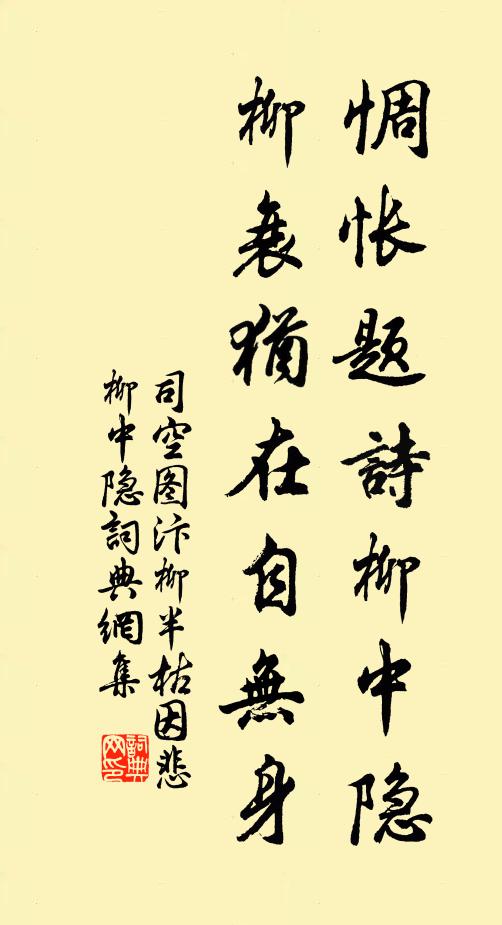 惆怅题詩柳中隐
柳衰猶在自無身
司空图汴柳半枯因悲
柳中隐詞典網集
詞典
网印